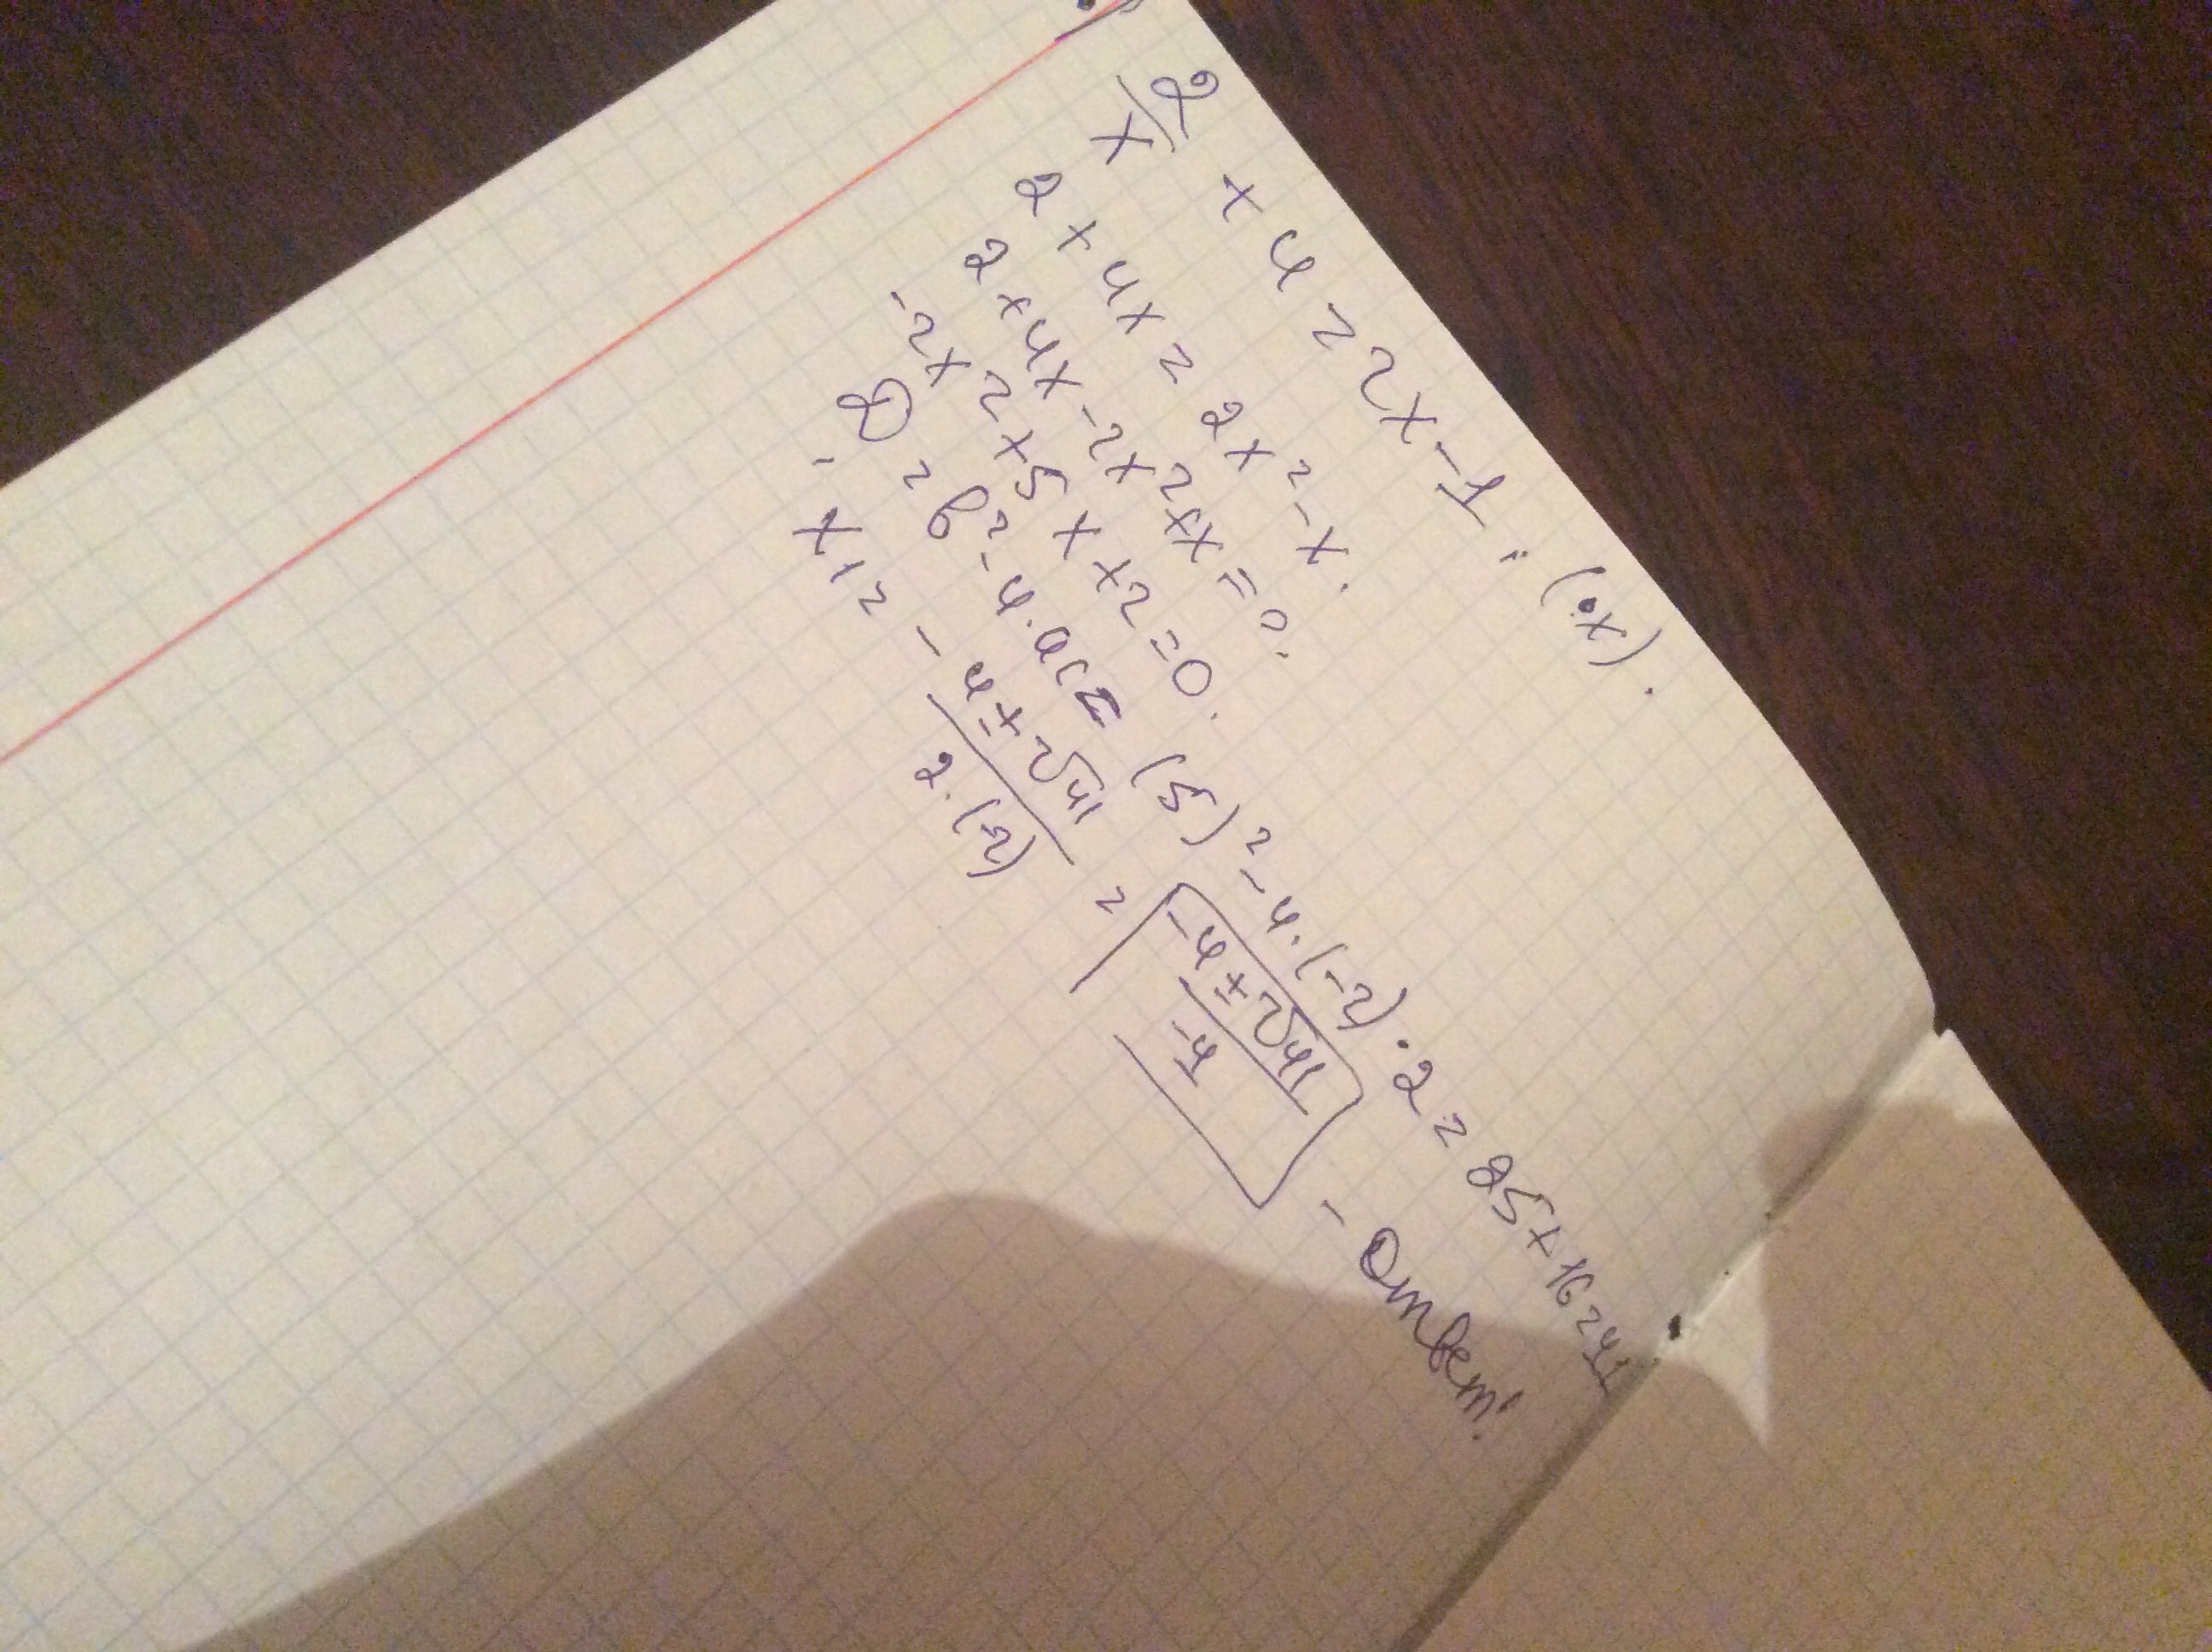 2/x + 4 = 2x - 1. (·x).
2 + 4x = 2x² - x.
2 + 4x - 2x² + x = 0.
-2x² + 5x + 2 = 0.
D = b² - 4·ac = (5)² - 4·(-2)·2 = 25 + 16 = 41
x1 = (-4 ± √41)/(2·(-2)) = (-4 ± √41)/(-4) - Ответ!